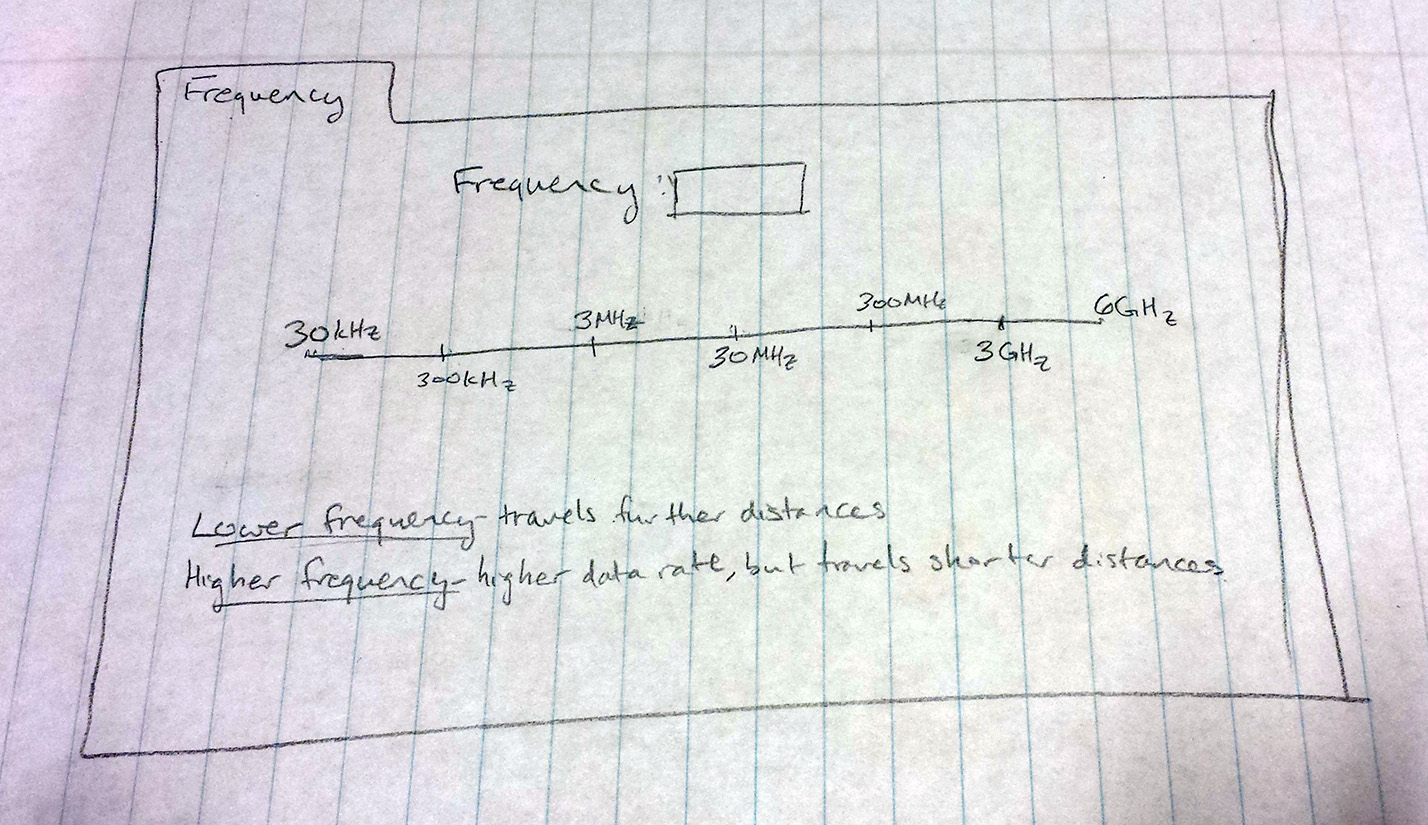 Frequency
Frequency:
30kHz
300kHz
3MHz
30MHz
300MHz
3GHz
6GHz
Lower frequency- travels further distances
Higher frequency- higher data rate, but travels shorter distances